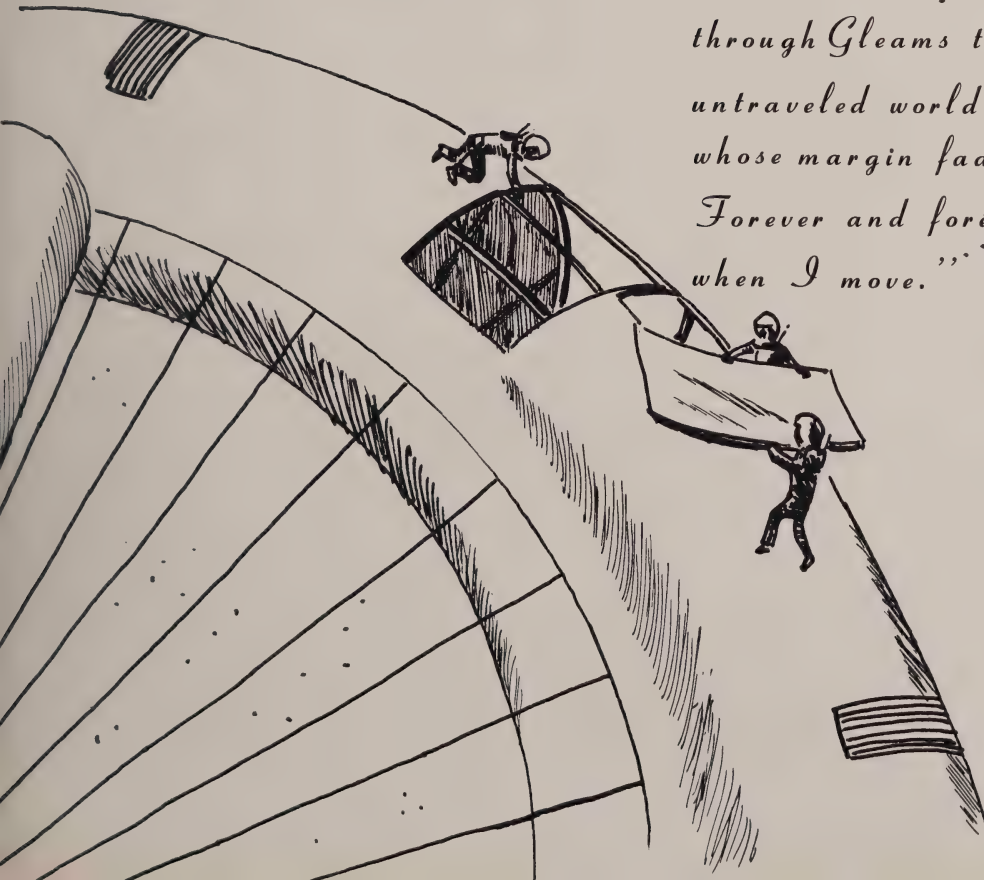 through Gleams
untraveled world
whose margin
Forever and
when I move.”’